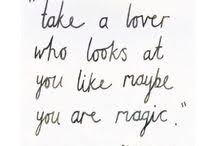 "take a lover
who looks at
you like maybe
you are magic."